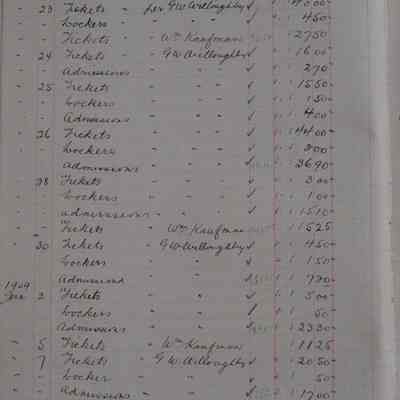 - 23 Tickets - per G W Willoughby √ 4000
- - Lockers - - - √ 450
- - Tickets - Wm Kaufman 2750
- 24 Tickets - G W Willoughby √ 1600
- - Admissions - - - √ 270
- 25 Tickets - - - √ 1550
- - Lockers - - - √ 150
- - Admissions - - - √ 400
- 26 Tickets - - - √ 14400
- - Lockers - - - √ 200
- - Admissions - - - 3690
- 28 Tickets - - - √ 300
- - Lockers - - - √ 100
- - Admissions - - - √ 1510
- - Tickets - Wm Kaufman 1525
- 30 Tickets - G W Willoughby √ 450
- - Lockers - - √ 150
- - Admissions - - √
1909
2 Tickets - " √ 500
Lockers - " √ 50
Admissions - " √ 2330
- 5 Tickets - Wm Kaufman 1125
- 7 Tickets - G W Willoughby √ 2050
- - Locker - " √ 50
- - Admissions - " √ 1700